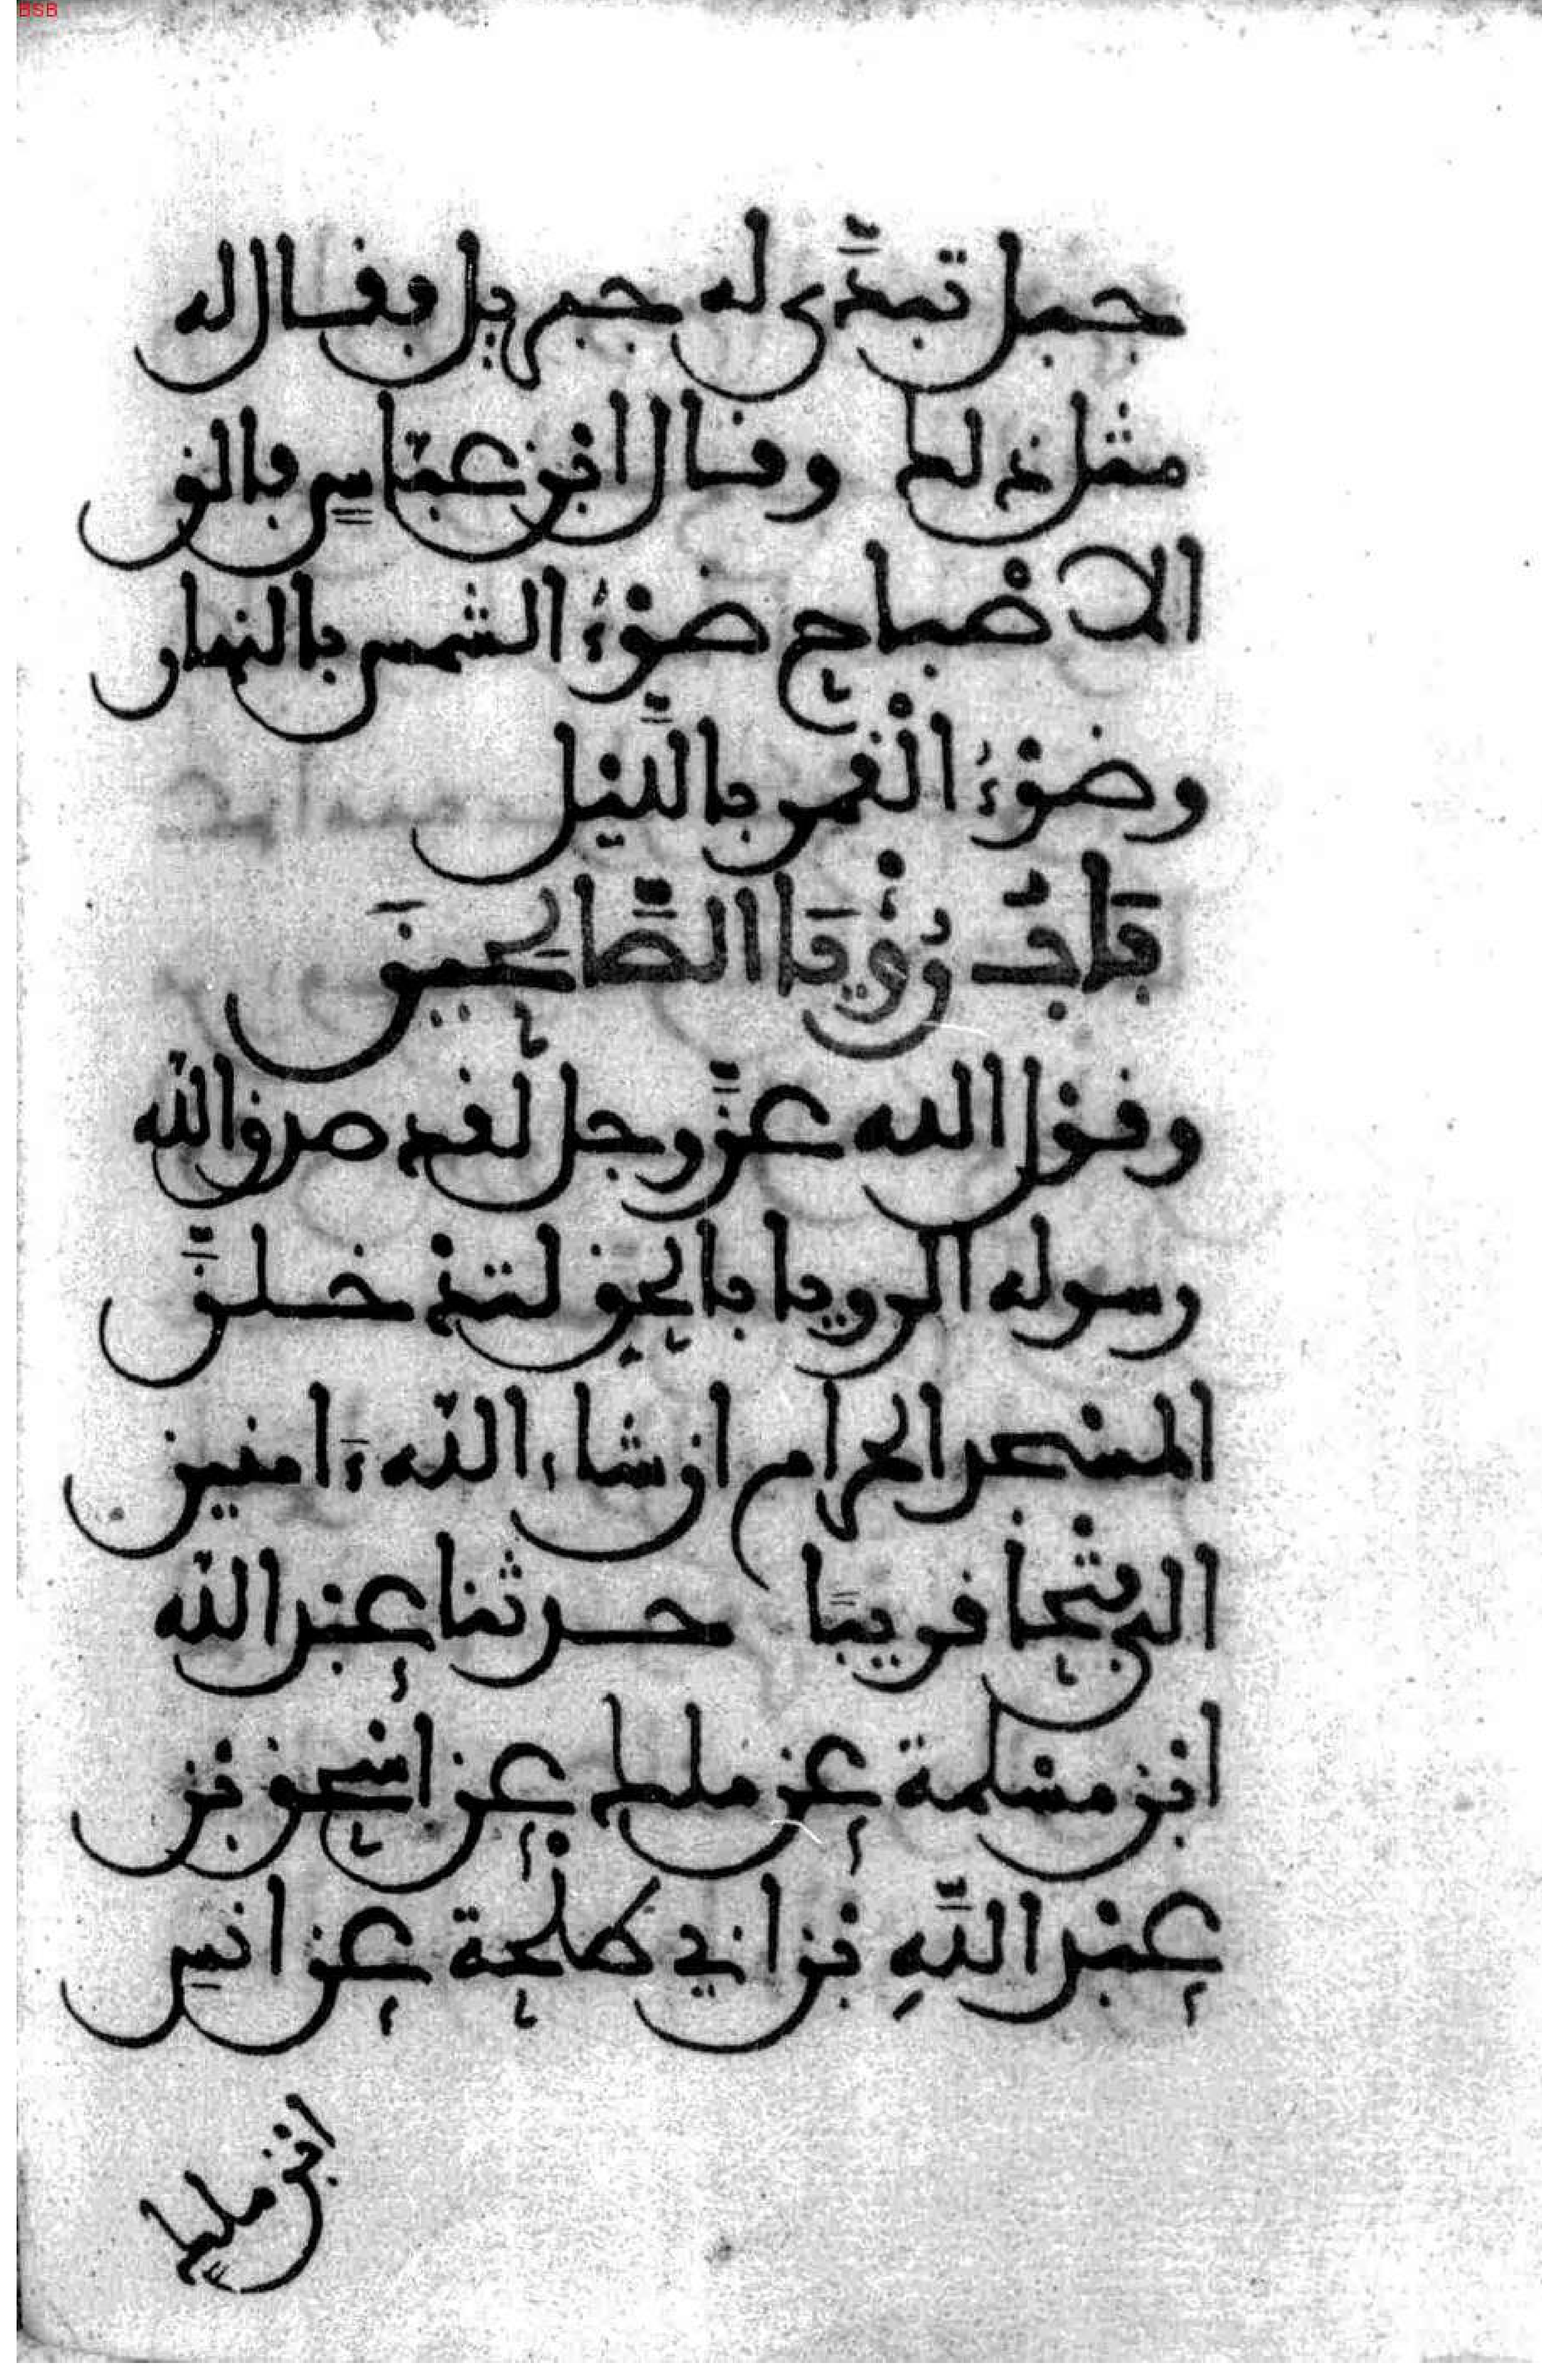 BSB
جبل تبدّى له جبريل فقال له
مثل ذلك وقال ابن عباس فالق
الاصْباح ضوْءُ الشمس بالنهار
وضوْءُ الْقمر بالليْل
بَابُ رُؤْيَا الصَّالحينَ
وقول الله عزّ وجل لقد صدق اللّه
رسوله الرويا بالحق لتدْخلنّ
المسْجد الحرام ان شاء اللّه ءَامنين
الى فتْحًا قريبًا حدثنا عبْد اللّه
ابْن مسْلمة عن ملك عن اسْحق بْن
عبْد اللَّهِ بْن ابي طلْحة عن انس
ابْن ملكٍ